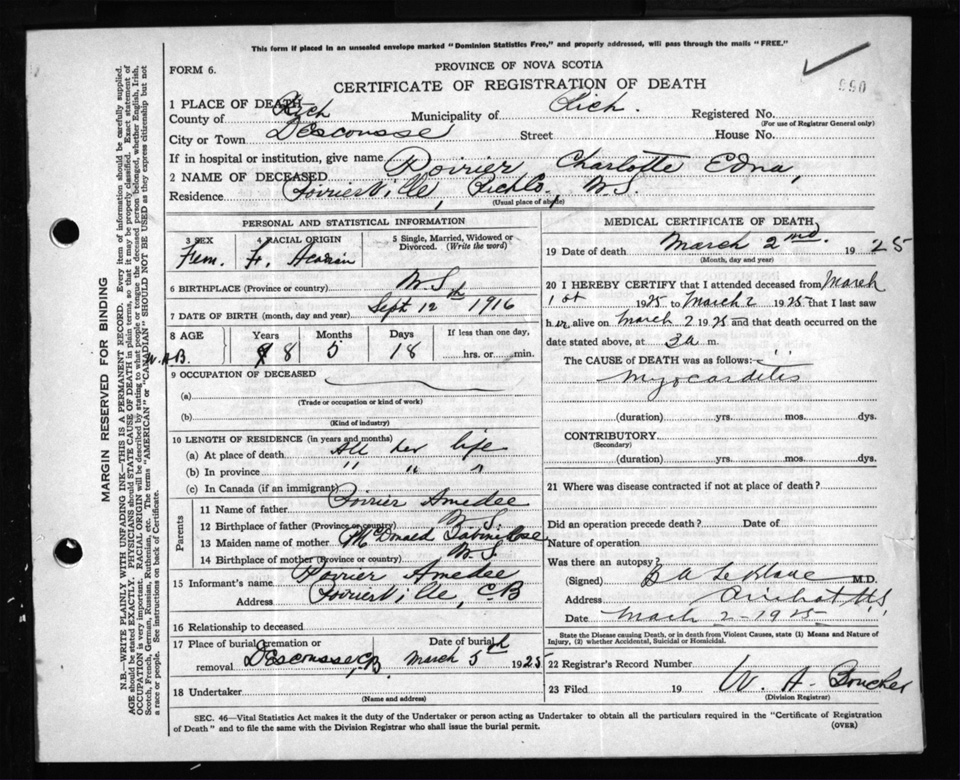 This form if placed in an unsealed envelope marked "Dominion Statistics Free," and properly addressed, will pass through the mails "FREE."
FORM 6.
PROVINCE OF NOVA SCOTIA
CERTIFICATE OF REGISTRATION OF DEATH
990
1 PLACE OF DEATH
County of Rich Municipality of Rich. Registered No.
(For use of Registrar General only)
City or Town Descousse Street House No.
If in hospital or institution, give name
2 NAME OF DECEASED Poirier Charlotte Edna,
Residence Poirierville, Rich Co, N.S.
(Usual place of abode)
PERSONAL AND STATISTICAL INFORMATION
3 SEX 4 RACIAL ORIGIN 5 Single, Married, Widowed or Divorced. (Write the word)
Fem. Fr. Acadian
6 BIRTHPLACE (Province or country) N.S.
7 DATE OF BIRTH (month, day and year) Sept 12th 1916
8 AGE Years Months Days If less than one day,
W.A.B. 8 5 18 hrs. or min.
9 OCCUPATION OF DECEASED
(a)
(Trade or occupation or kind of work)
(b)
(Kind of industry)
10 LENGTH OF RESIDENCE (in years and months)
(a) At place of death All her life
(b) In province " " "
(c) In Canada (if an immigrant)
Parents
11 Name of father Poirier Amedee
12 Birthplace of father (Province or country) N.S.
13 Maiden name of mother McDonald
14 Birthplace of mother (Province or country) N.S.
15 Informant's name Poirier Amedee
Address Poirierville, C.B
16 Relationship to deceased
17 Place of burial, cremation or removal Descousse, C.B. Date of burial March 5th 1925
18 Undertaker
(Name and address)
MEDICAL CERTIFICATE OF DEATH
19 Date of death March 2nd. 1925
(Month, day and year)
20 I HEREBY CERTIFY that I attended deceased from March
1st 1925 to March 2 1925 that I last saw
her alive on March 2 1925 and that death occurred on the
date stated above, at 3 a m.
The CAUSE of DEATH was as follows:—
Myocarditis
(duration) yrs. mos. dys.
CONTRIBUTORY
(Secondary)
(duration) yrs. mos. dys.
21 Where was disease contracted if not at place of death?
Did an operation precede death? Date of
Nature of operation
Was there an autopsy?
(Signed) B A LeBlanc M.D.
Address Arichat NS
Date March 2 - 1925
State the Disease causing Death, or in death from Violent Causes, state (1) Means and Nature of Injury, (2) whether Accidental, Suicidal or Homicidal.
22 Registrar's Record Number
23 Filed 19 W. A. Boucher
(Division Registrar)
SEC. 46—Vital Statistics Act makes it the duty of the Undertaker or person acting as Undertaker to obtain all the particulars required in the "Certificate of Registration
of Death" and to file the same with the Division Registrar who shall issue the burial permit.
(OVER)
MARGIN RESERVED FOR BINDING
N.B.—WRITE PLAINLY WITH UNFADING INK—THIS IS A PERMANENT RECORD. Every item of information should be carefully supplied.
AGE should be stated EXACTLY. PHYSICIANS should STATE CAUSE OF DEATH in plain terms, so that it may be properly classified. Exact statement of
OCCUPATION is very important. RACIAL ORIGIN will be described by stating to what people or tongue the deceased person belonged, whether English, Irish,
Scotch, French, German, Russian, Ruthenian, etc. The terms "AMERICAN" or "CANADIAN" SHOULD NOT BE USED as they express citizenship but not
a race or people. See instructions on back of Certificate.